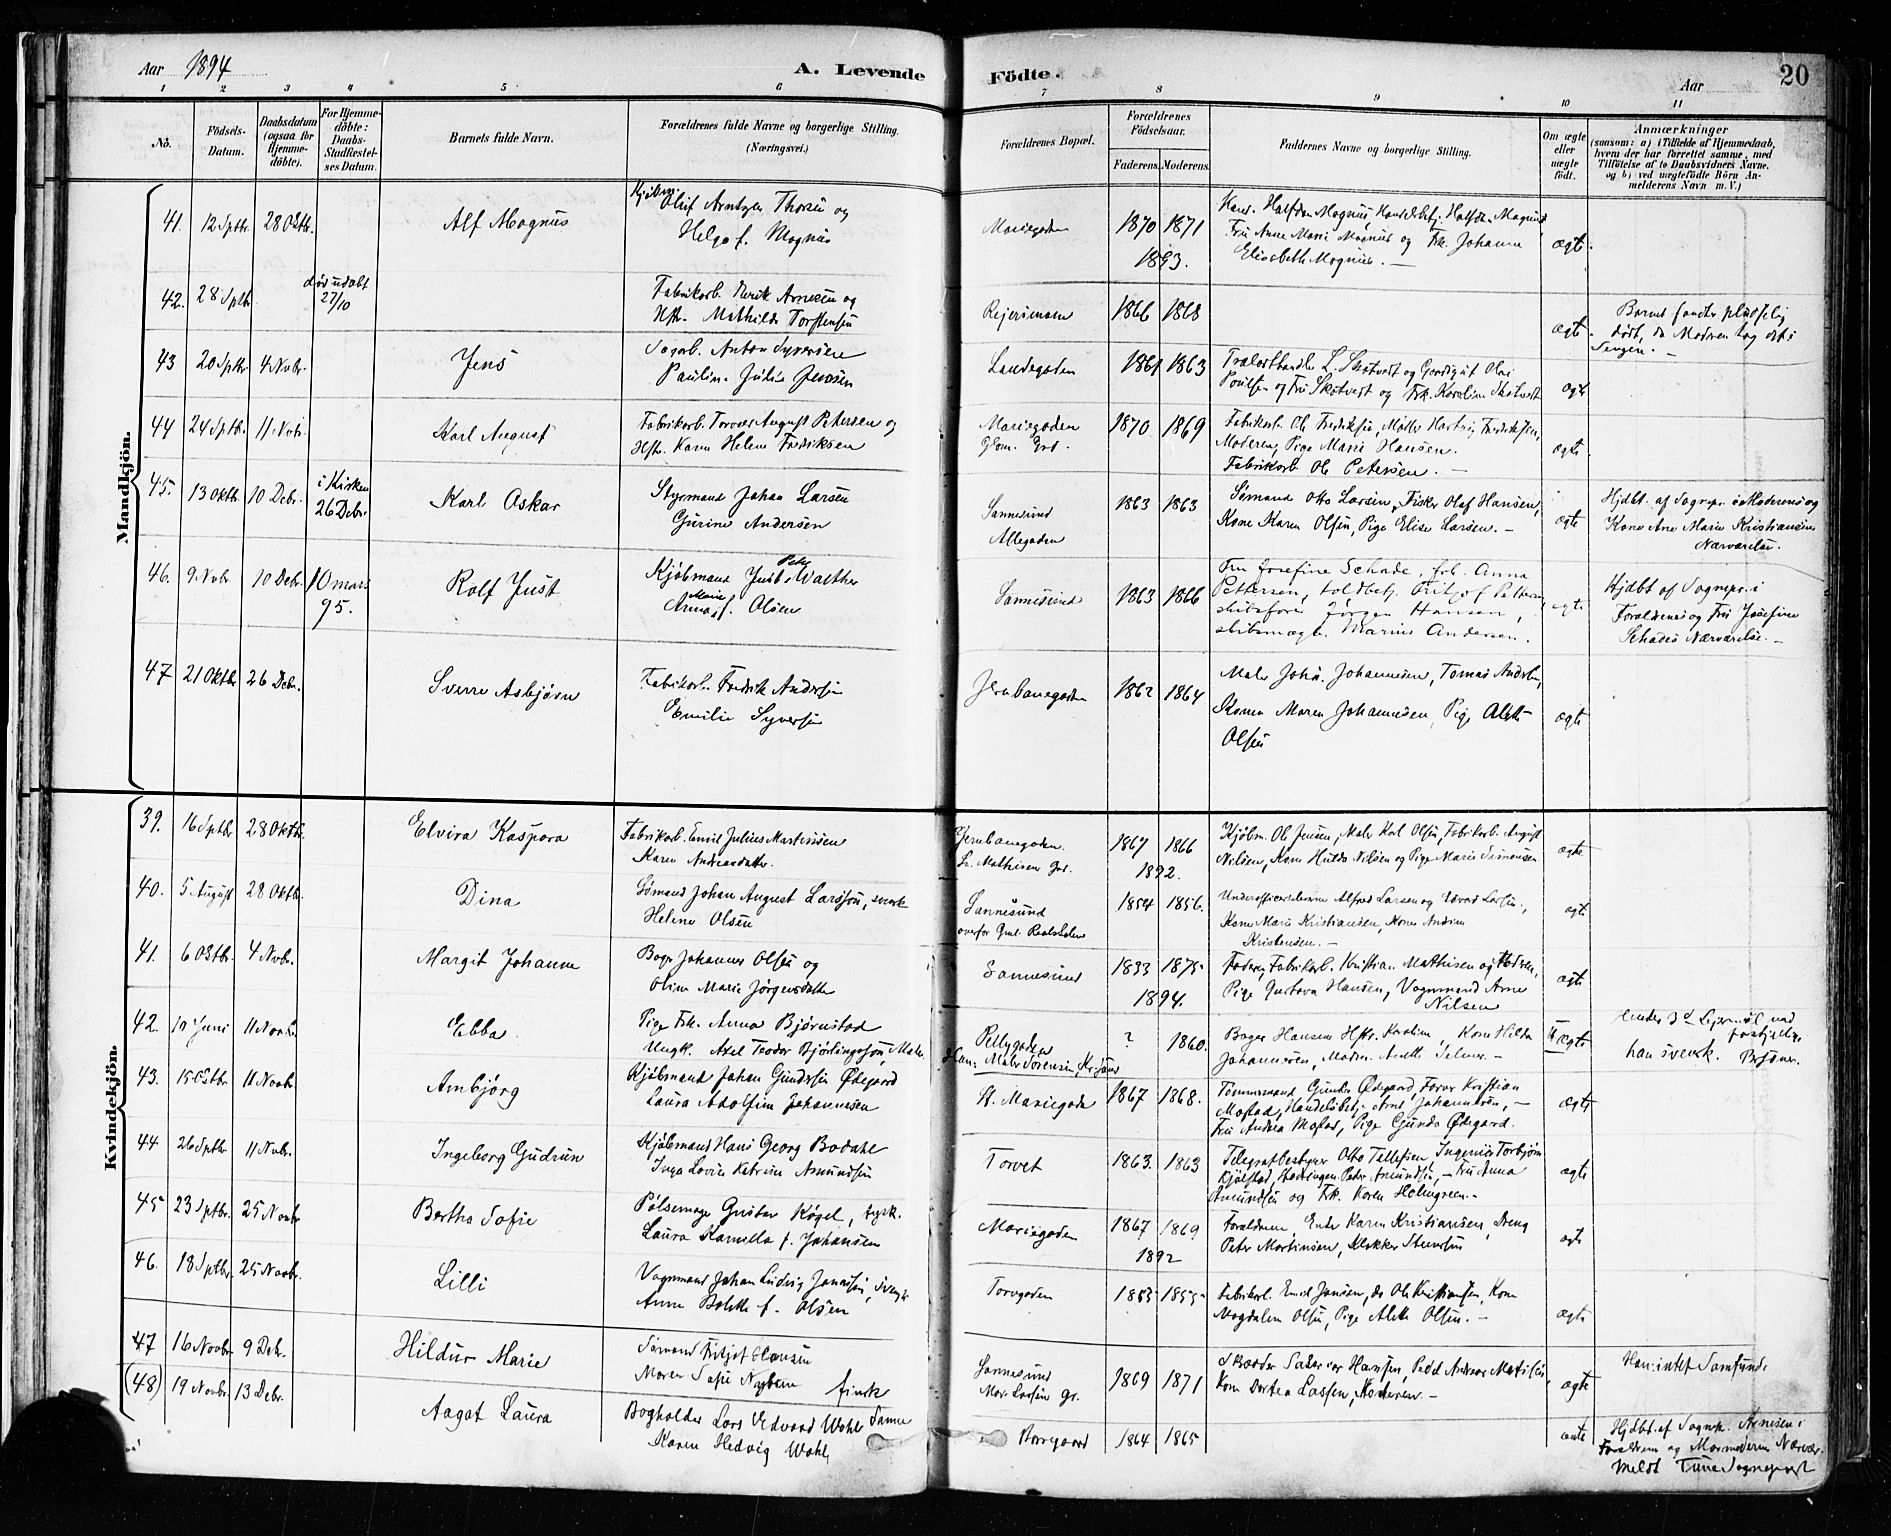 Aar 1894
A. Levende
Födte.
Aar
20
1 2 3 4 5 6 7 8 9 10 11
No.
Födsels-Datum.
Daabsdatum (ogsaa för Hjemme-döbte).
For Hjemme-döbte: Daabs-Stadfæstel-ses Datum.
Barnets fulde Navn.
Forældrenes fulde Navne og borgerlige Stilling. (Næringsvei.)
Forældrenes Bopæl.
Forældrenes Födselsaar.
Faderens. Moderens.
Faddernes Navne og borgerlige Stilling.
Om ægte eller uægte födt.
Anmærkninger (saasom: a) i Tilfælde af Hjemmedaab, hvem der har forrettet samme, med Tilföielse af to Daabsvidners Navne, og b) ved uægtefödte Börn An-melderens Navn m. V.)
Mandkjön.
41. 12 Sptbr. 28 Oktbr. Alf Magnus
Kjøbm. Oluf Arntzen Thoresen og
Helga f. Magnus
Mariegaden 1870 1871
1893.
Halfdan Magnus, Handelsbetj. Halfdan Magnus
Fru Anne Marie Magnus og Frk. Johanne
Elisabeth Magnus. —
ægte
42. 28 Sptbr. død udøbt 27/10
Fabrikarb. Henrik Arnesen og
Hstr. Mathilde Torstensen
1866 1868
ægte
Barnet fandtes pludselig
dødt, da Moderen tog det i
Sengen. —
43 20 Sptbr 4 Novbr. Jens
Sagarb. Anton Syversen
Pauline Julie Jensen
Landegaden 1861 1863
Trælasthandler L. Skotvedt og Gordigut Olai
Poulsen og Fru Skotvedt og Frk. Karoline Skotvedt
ægte
44 24 Sptbr. 11 Novbr. Karl August
Fabrikarb. Torvas August Petersen og
Hstr. Karen Helene Fredriksen
Mariegaden
1870 1869
Fabrikarb. Ole Fredriksen, Møller Hartvig Fredriksen,
Moderen, Pige Marie Hansen.
Fabrikarb. Ole Petersen. —
ægte
45. 13 Oktbr 10 Decbr. i Kirken 26 Decbr Karl Oskar
Styrmand Johan Larsen
Gurine Andersen
Sannesund
Allegaden
1863 1863
Sømand Otto Larsen, Fisker Olaf Hansen,
Kone Karen Olsen, Pige Elise Larsen. —
ægte
Hjdbt. af Sognepr. i Moderens og
Kone Ane Marie Kristiansens
Nærværelse.
46. 9 Novbr 10 Decbr. 10 mars 95. Rolf Just
Kjøbmand Just Peter Walther
Anna Marie f. Olsen
Sannesund 1863 1866
Fru Josefine Schade, frk. Anna
Pettersen, toldbetj. Fritjof Pettersen,
skibsfører Jørgen Hansen,
skibsmægl. Marius Andersen.
ægte
Hjdbt af Sognepr. i
Forældrenes og Fru Josefine
Schades Nærværelse. —
47 21 Oktbr 26 Decbr. Sverre Asbjørn
Fabrikarb. Fredrik Andersen
Emilie Syversen
Jernbanegaden 1862 1864
Maler Johs. Johannesen, Tomas Andersen,
Kone Maren Johannesen, Pige Alette
Olsen
ægte
Kvindekjön.
39. 16 Sptbr 28 Oktbr. Elvira Kaspara
Fabrikarb. Emil Julius Martinsen
Karen Andreasdatter.
Jernbanegaden.
L. Mathisens Grd.
1867 1866
1892.
Kjøbm. Ole Jensen, Maler Karl Olsen, Fabrikarb. August
Nilsen, Kone Hulda Nilsen og Pige Marie Simonsen
ægte
40. 5 August 28 Oktbr. Dina
Sømand Johan August Larsson, svensk
Helene Olsen
Sannesund
1854 1856.
Alfred Larsen og Edvard Larsen,
Kone Marie Kristiansen, Kone Andrine
Kristensen. —
ægte
41. 6 Oktbr. 4 Novbr. Margit Johanne
Bager Johannes Olsen og
Oline Marie Jørgensdatter
Sannesund 1833 1875
1894.
Faderen, Fabrikarb. Kristian Mathisen og Moderen,
Pige Gustava Hansen, Vognmand Arne
Nilsen
ægte
42. 10 Juni 11 Novbr. Ebba.
Pige Frk. Anna Bjørnstad
Ungk. Axel Teodor Bjørlingsson, Maler
Pellygaden
Maler Sørensen
? 1860.
Bager Hansens Hstr. Karoline, Kone Hilda
Johannesen, Madm. Anette Selmer. —
Uægte
Hendes 3d Leiermaal med
forskjellige
han svensk. Personer.
43. 15 Oktbr. 11 Novbr. Ambjørg
Kjøbmand Johan Gundersen Ødegaard
Laura Adolfine Johannesen
St. Mariegade 1867 1868.
Tømmermand Gunder Ødegaard, Farver Kristian
Mostad, Handelsbetj. Arne Johannesen, —
Fru Andrea Mostad, Pige Gunda Ødegaard.
ægte
44 26 Sptbr 11 Novbr. Ingeborg Gudrun
Kjøbmand Hans Georg Bodahl
Inga Lovise Katrine Amundsen
Torvet 1863. 1863
Telegrafbestyrer Otto Tellefsen, Ingeniør Torbjørn
Kjølstad, Peder Amundsen, — Fru Anna
Amundsen og Frk. Karen Holmgreen. —
ægte
45 23 Sptbr. 25 Novbr Bertha Sofie
Pølsemager Gustav Kögel, tysk.
Laura Kamilla f. Johansen
Mariegaden 1867 1869
1892
Forældrene, Enke Karen Kristiansen, Dreng
Peter Martinsen, Klokker Steensen
ægte
46. 18 Sptbr. 25 Novbr. Lilli
Vognmand Johan Ludvig Jonassen, svensk
Anne Bolette f. Olsen
Torvgaden 1853 1855
Fabrikarb. Emil Jansen, do Ole Kristiansen, Kone
Magdalene Olsen, Pige Alette Olsen. —
ægte
47 16 Novbr. 9 Decbr. Hildur Marie
Sømand Fritjof Hansen
Maren Sofie finsk
Sannesund
Mar. Larsens Gr.
1869 1871
Skrædder Hansen, Andreas Mathisen
Kone Dortea Lassen, Moderen. —
ægte
Han: intet Samfund.
(48) 19 Novbr. 13 Decbr. Aagot Laura
Bogholder Lars Edvard Wahl
Karen Hedvig Wahl
Borregaard 1864 1865
ægte
Hjdbt. af Sognepr. Arnesen i
Forældrenes og Mormoderens Nærvær.
Meldt Tune Sogneprest